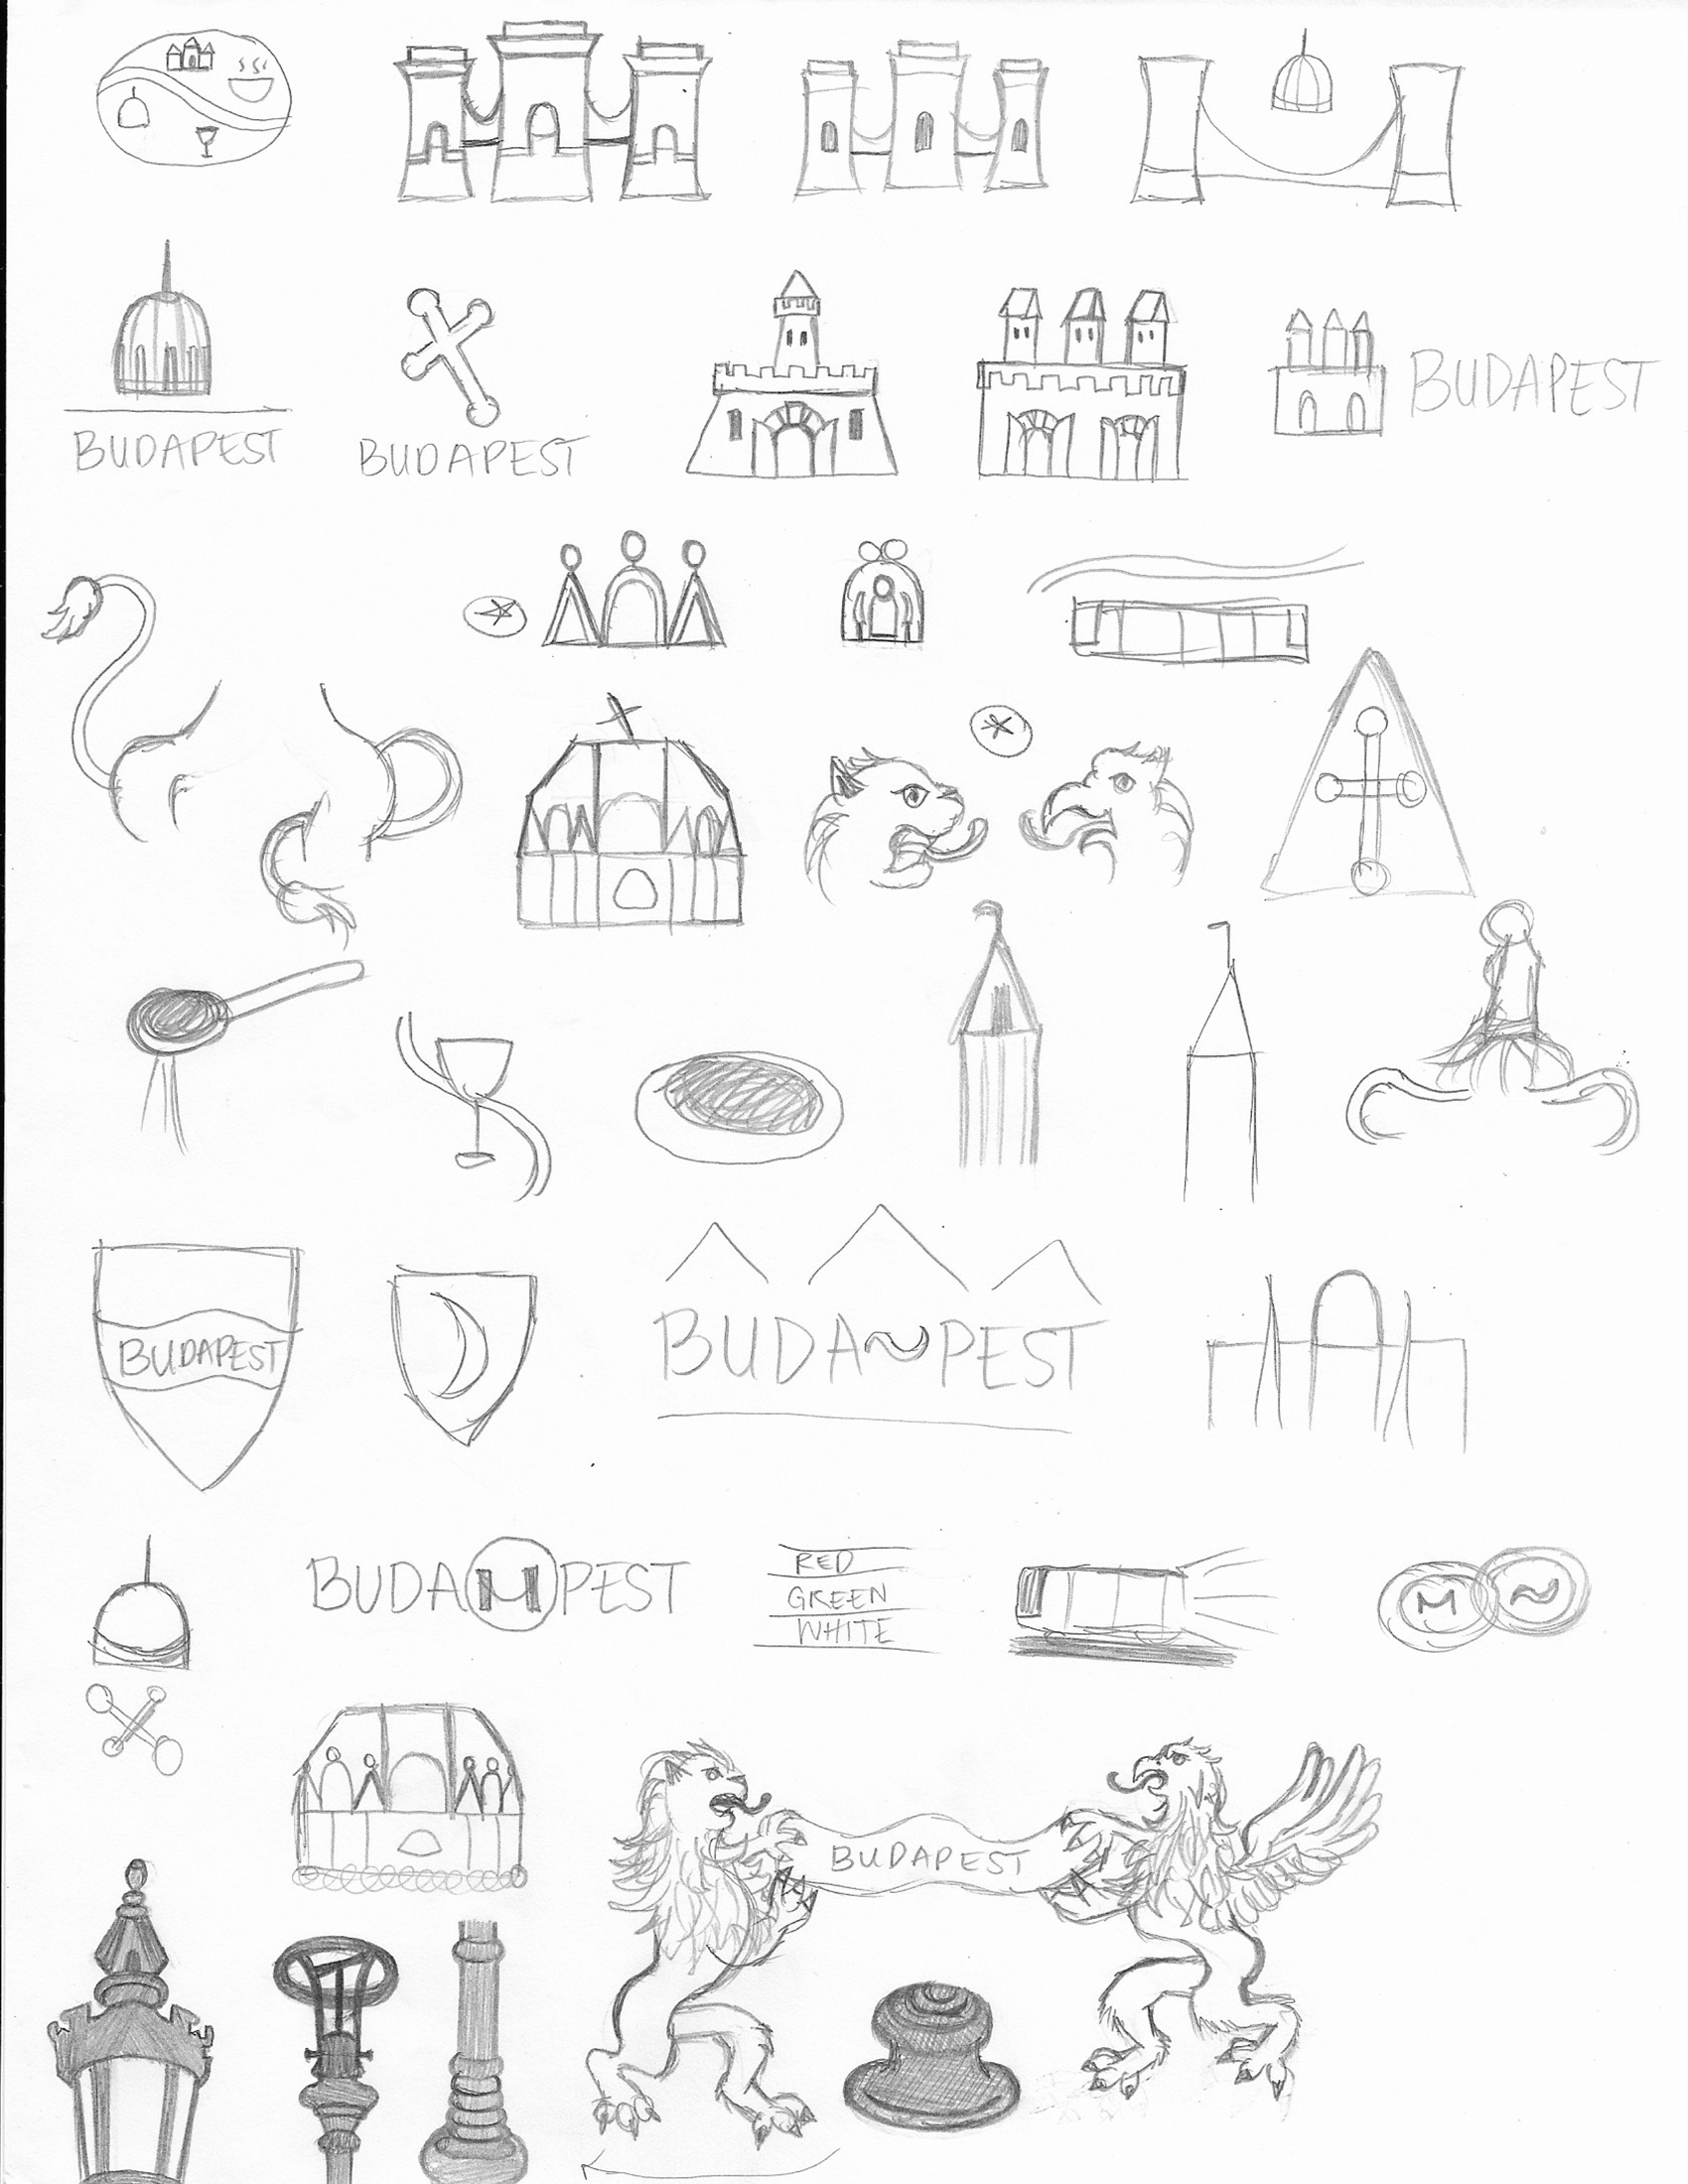 BUDAPEST
BUDAPEST
BUDAPEST
BUDAPEST
BUDA~PEST
BUDAMPEST
RED
GREEN
WHITE
M ~
BUDAPEST